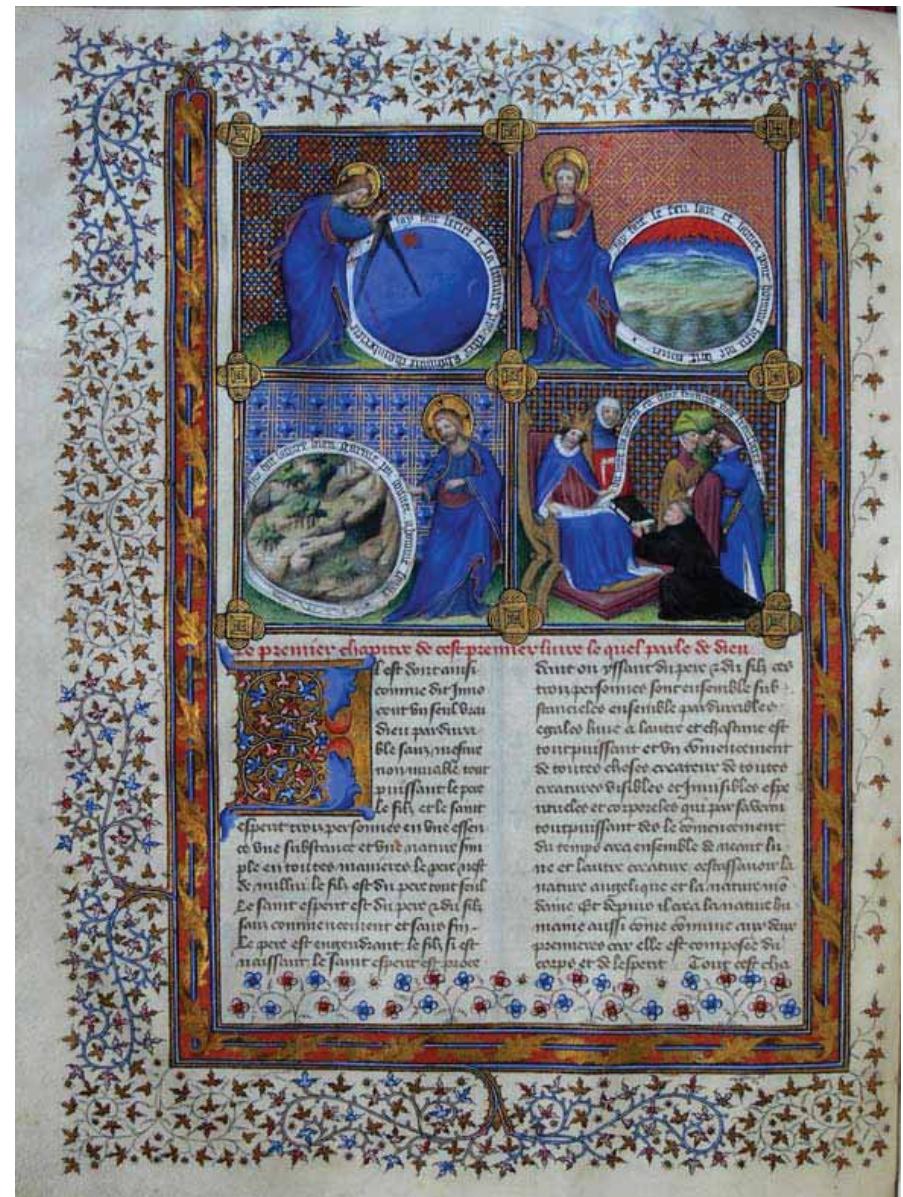 Le premier chapitre de cest premier livre le quel parle de dieu
l est dont ainsi
comme dit Inno
cent vn seul vrai
dieu pardura
ble sanz mesure
non muable tout
puissant le pere
le filz et le saint
esperit trois personnes en vne essen
ce vne substance et vne nature sim
ple en toutes manieres le pere nest
de nullui le filz est du pere tout seul
Le saint esperit est du pere & du filz
sanz commencement et sanz fin
Le pere est engendrant le filz si est
naissant le saint esperit est proce
dant ou yssant du pere & du filz ces
trois personnes sont ensemble sub
stancieles ensemble pardurables
egales lune a lautre et chascune est
toutpuissant et vn comencement
de toutes choses createur de toutes
creatures visibles et Inuisibles espe
rituelles et corporeles qui par sa vertu
toutpuissant des le comencement
du temps crea ensemble de neant lu
ne et lautre creature cestassauoir la
nature angelique et la nature mo
daine Et depuis il crea la nature hu
maine aussi come comune aux deux
premieres car elle est composee du
corps et de lesperit Tout cest cha